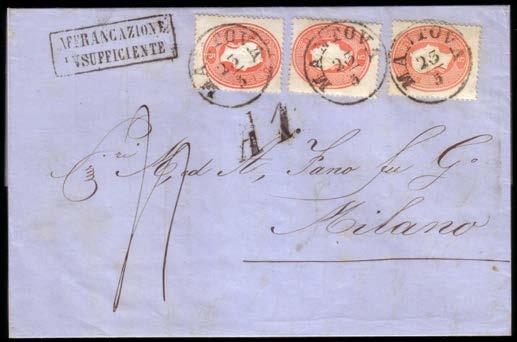 AFFRANCAZIONE
INSUFFICIENTE
MANTOVA
23/5
MANTOVA
23/5
MANTOVA
23/5
A 1.
Fano fu G.
Milano